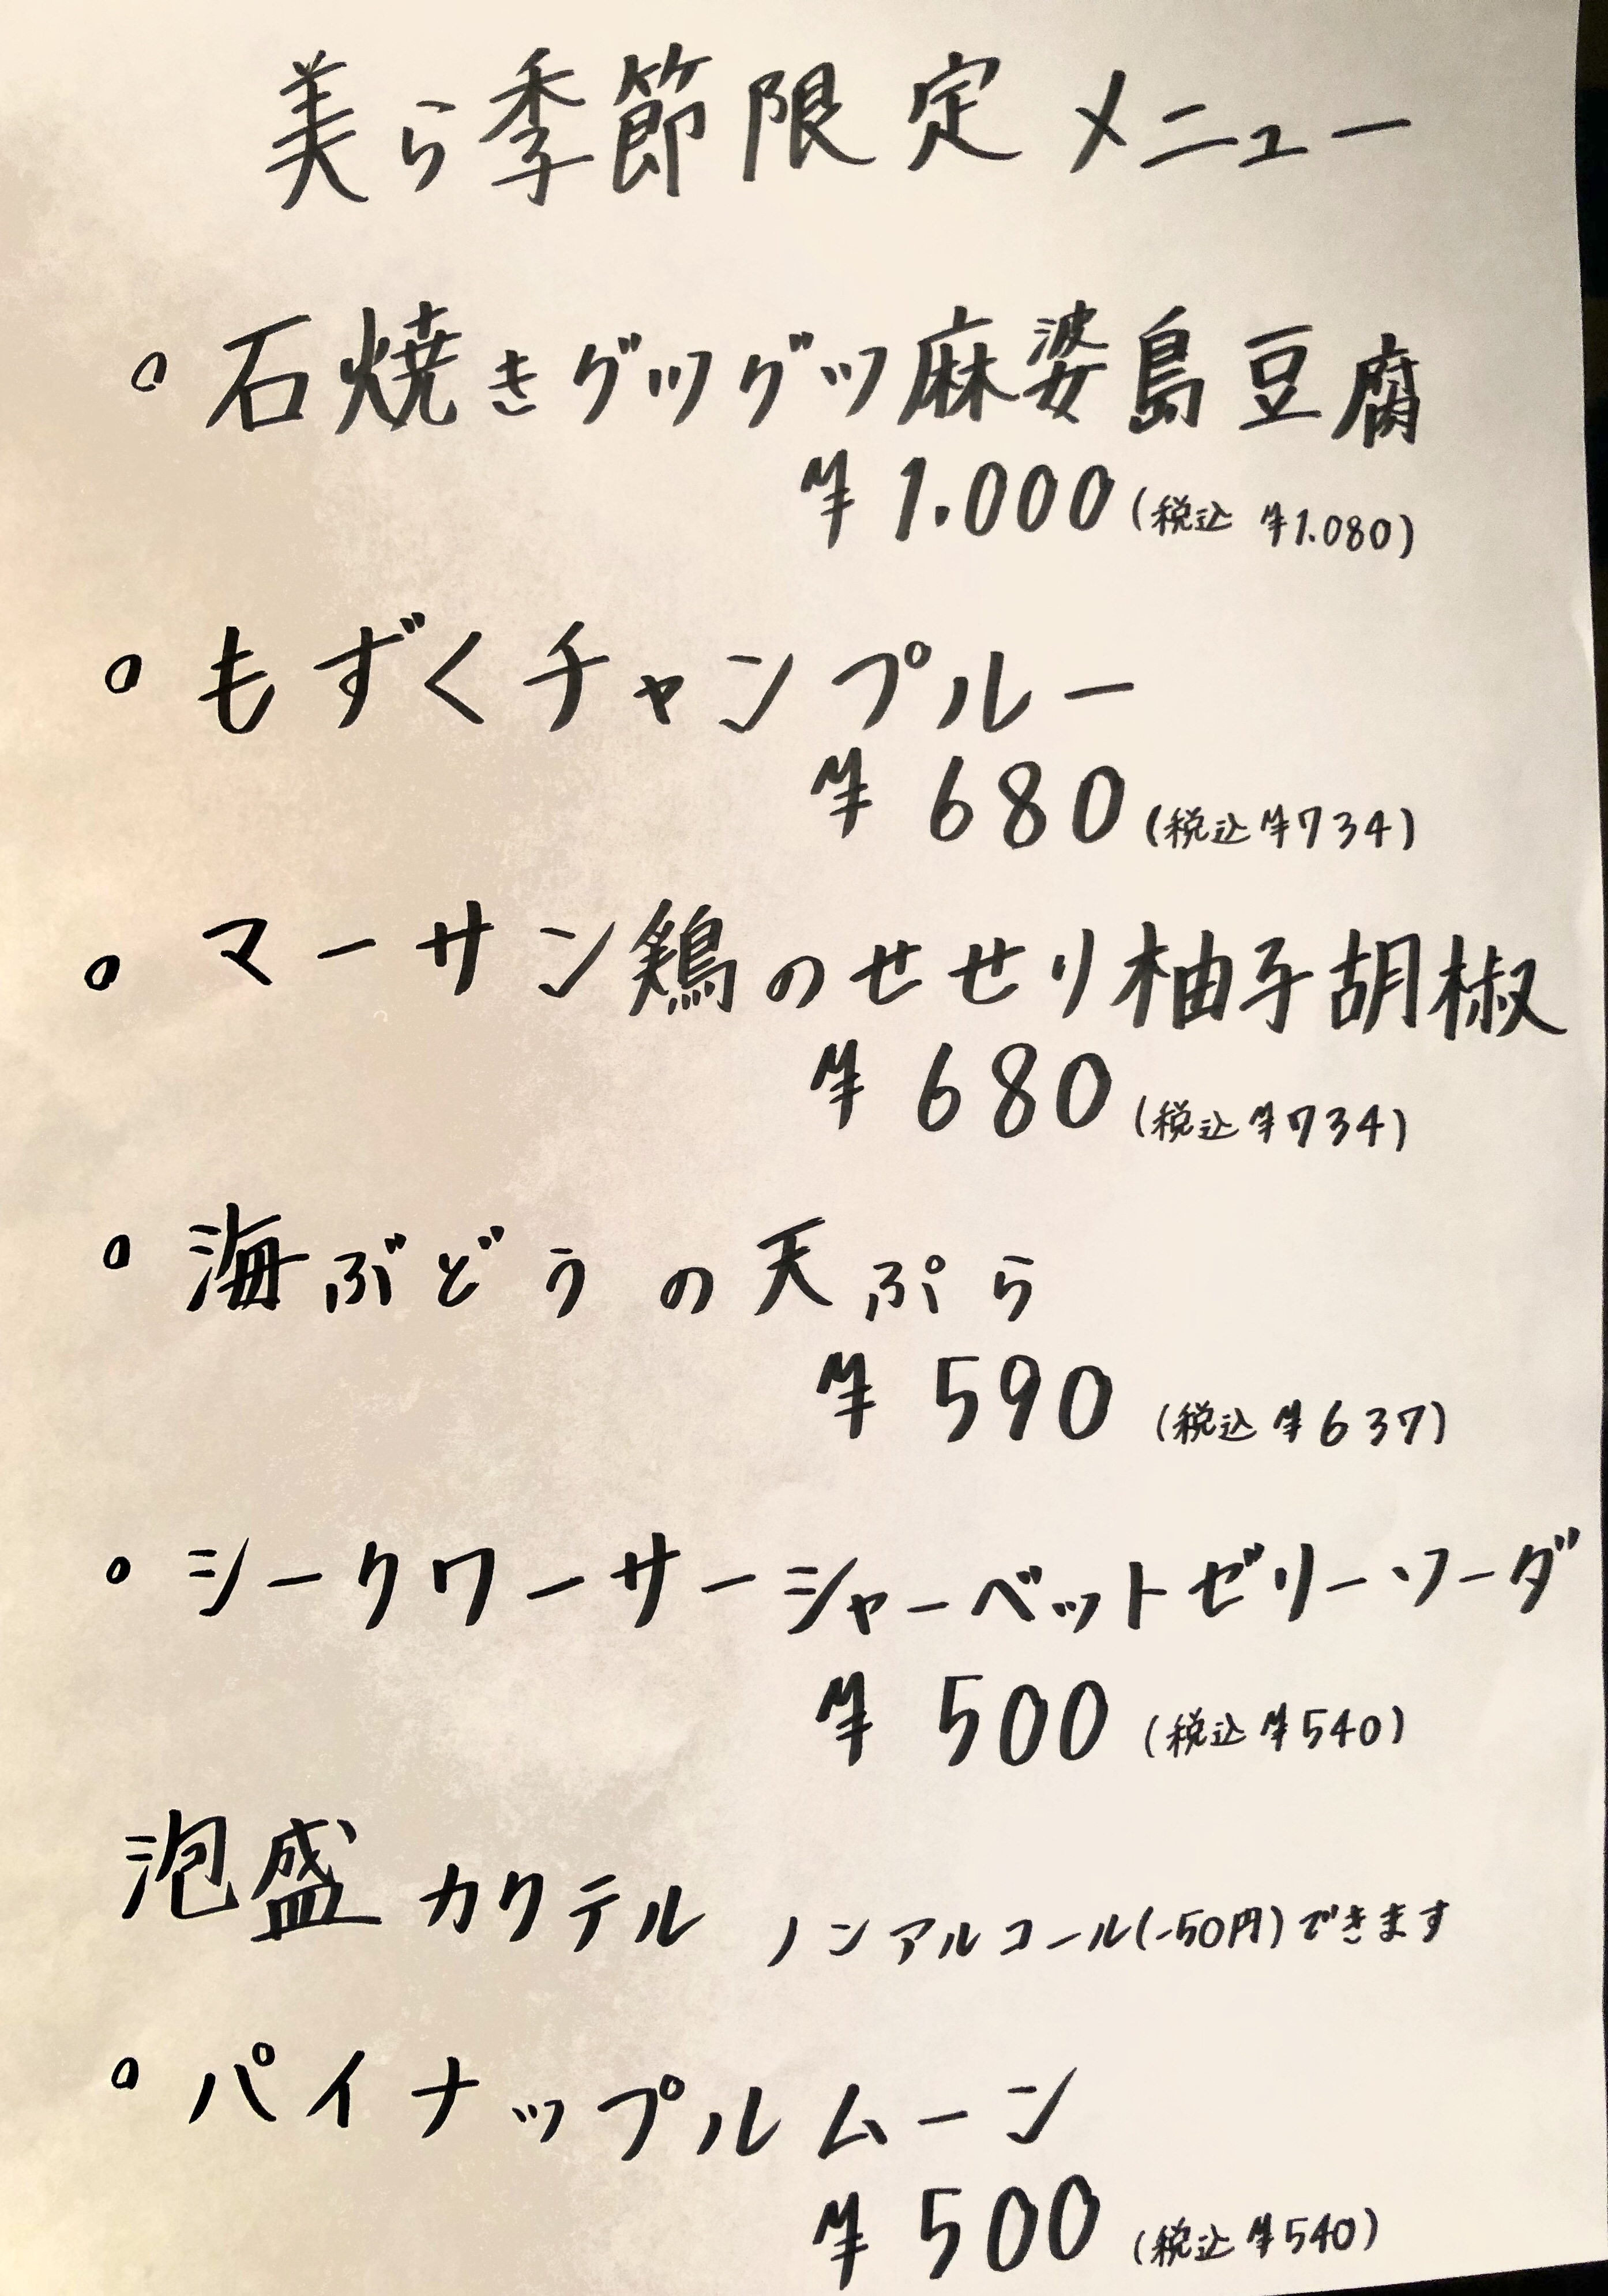 美ら季節限定メニュー
。石焼きグツグツ麻婆島豆腐
¥1.000(税込 ¥1.080)
。もずくチャンプルー
¥680(税込¥734)
。マーサン鶏のせせり柚子胡椒
¥680(税込¥734)
。海ぶどうの天ぷら
¥590(税込¥637)
。シークワーサーシャーベットゼリーソーダ
¥500(税込¥540)
泡盛カクテル ノンアルコール(-50円)できます
。パイナップルムーン
¥500(税込¥540)